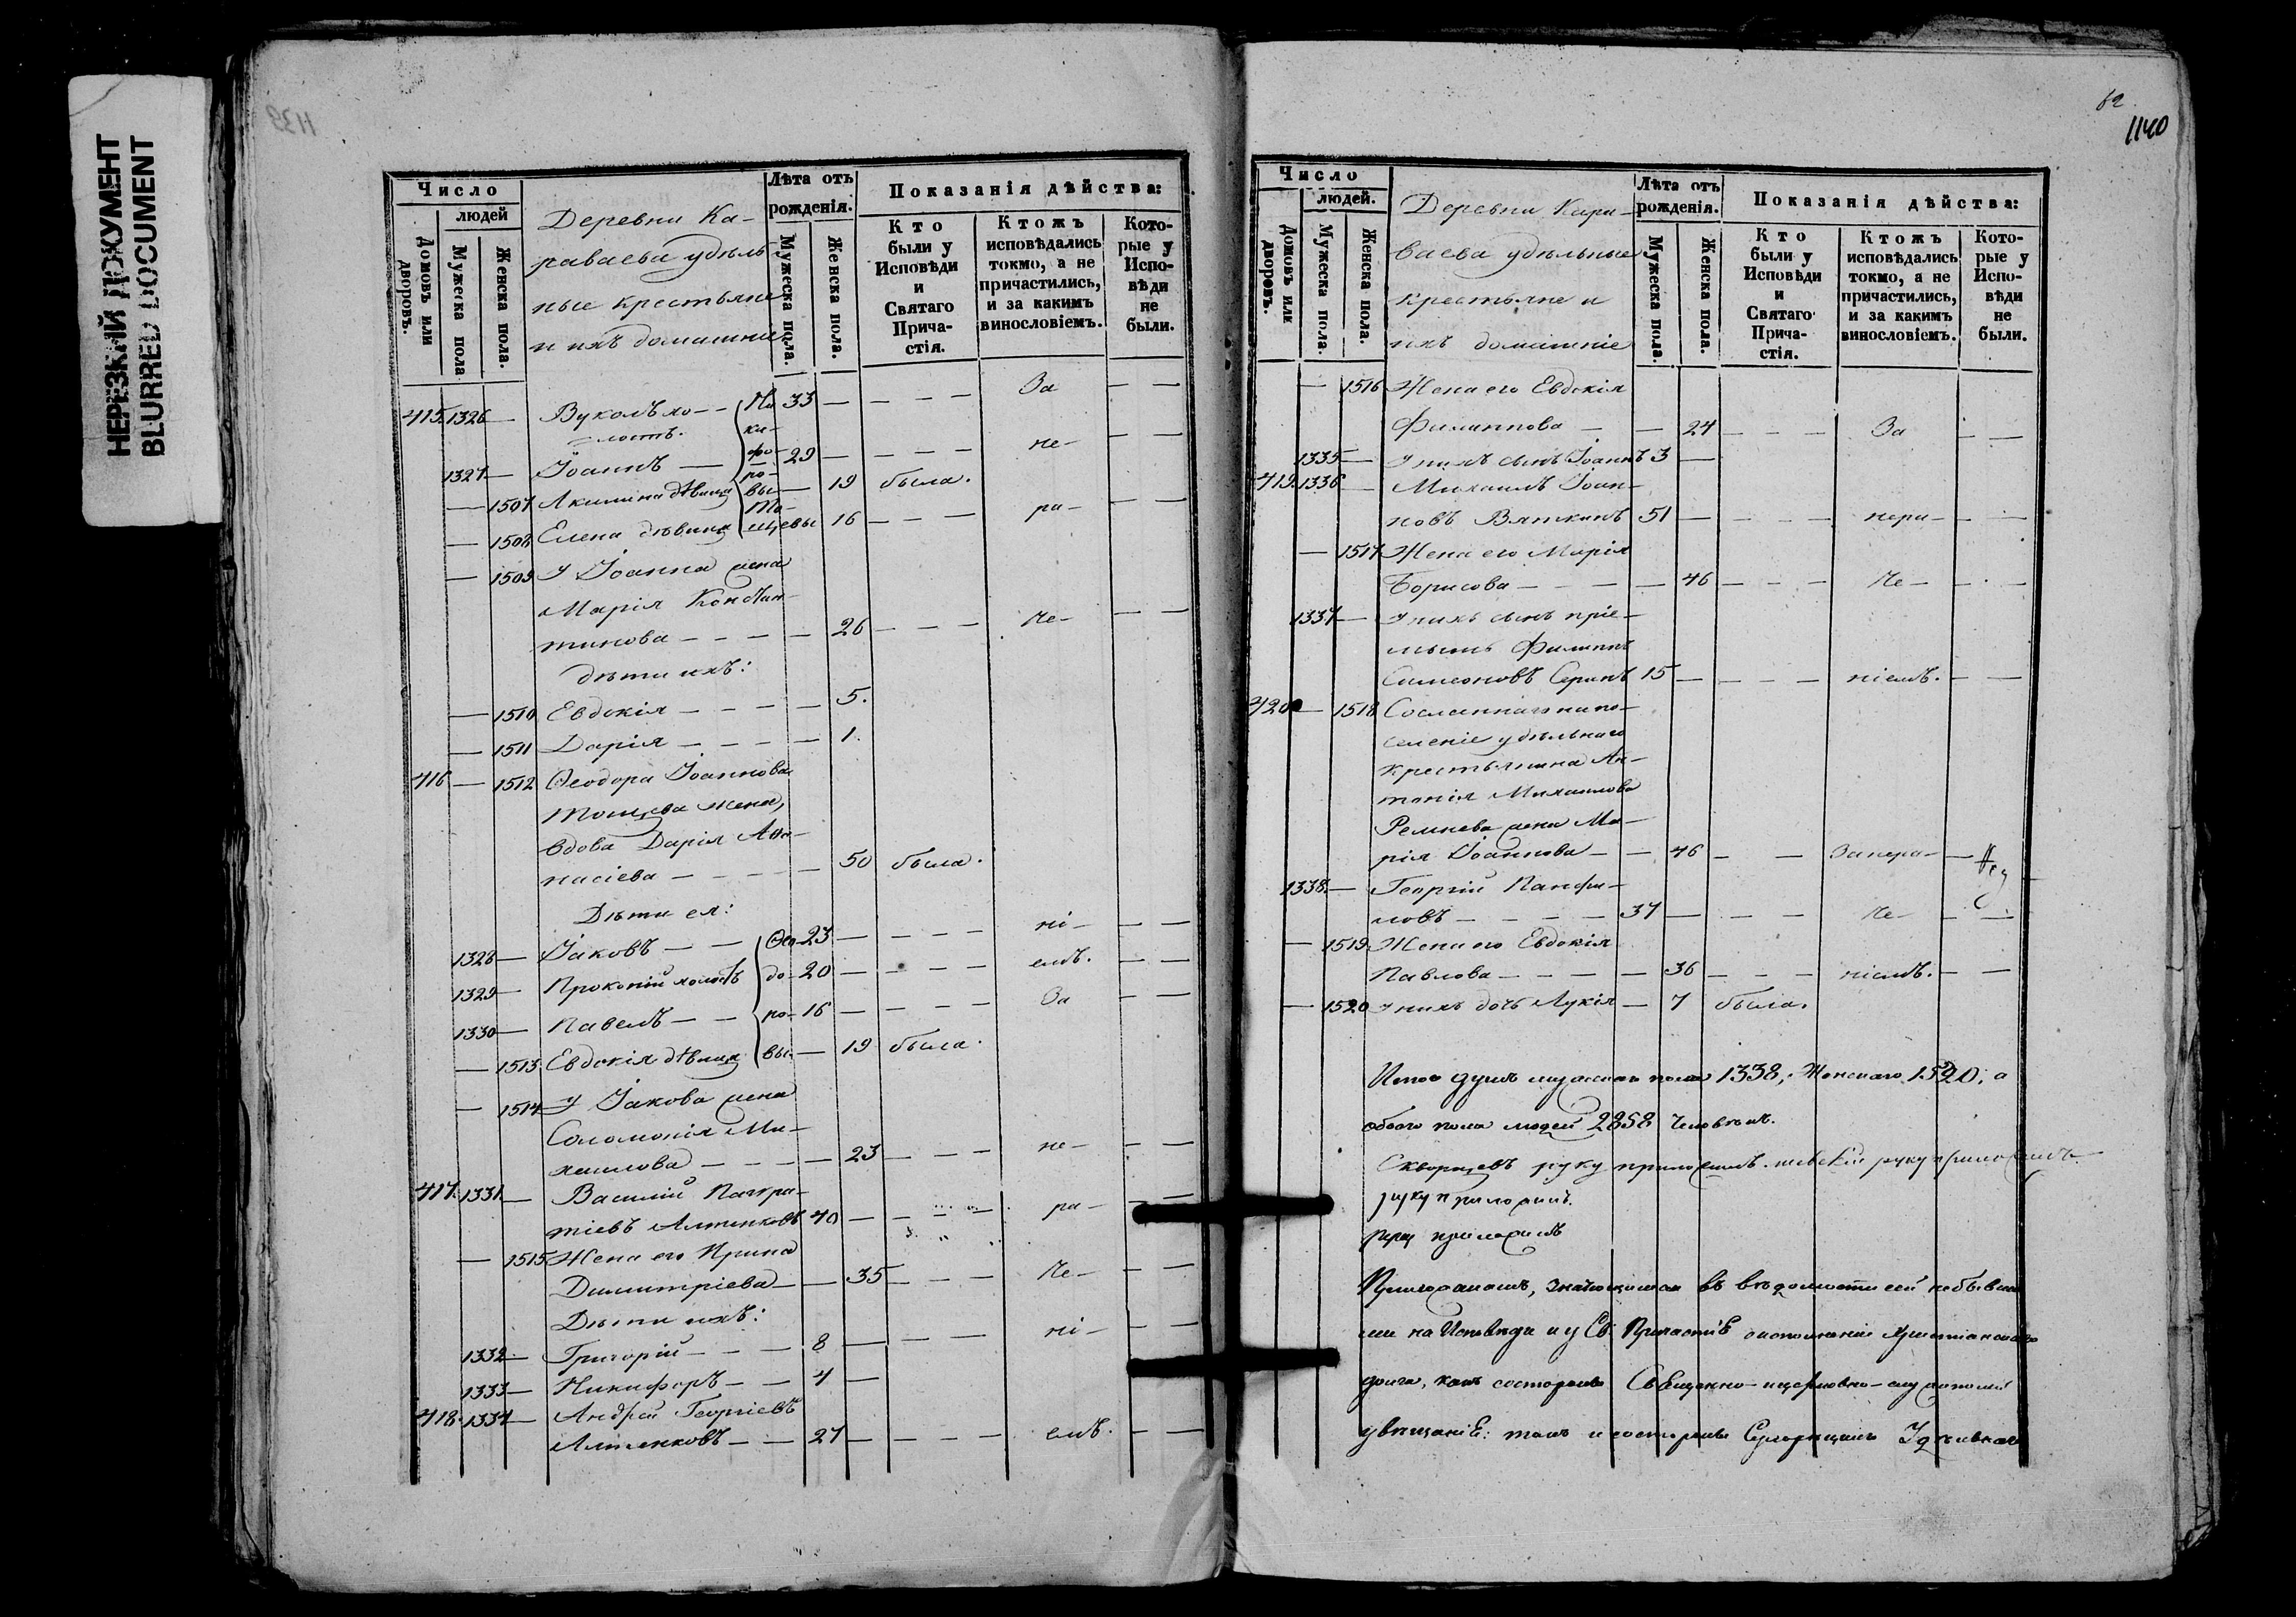 НЕРЕЗКИЙ ДОКУМЕНТ
BLURRED DOCUMENT
1139
Число
людей
Домовъ или дворовъ.
Мужеска пола
Женска пола.
Деревни Ка-
раваева удѣль-
ные крестьяне
и ихъ домашніе
Лѣта отъ рожденія.
Мужеска пола.
Женска пола.
Показанія дѣйства:
Кто были у Исповѣди и Святаго Причастія.
Ктожъ исповѣдались токмо, а не причастились, и за какимъ винословіемъ.
Которые у Исповѣди не были.
415. 1326 — Вуколъ хо- — 33 — — — — За — —
лостъ.
1327 — Іоаннъ — 29 — — — — не- — —
— 1507 Акилина дѣвица — 19 была.
— 1508 Елена дѣвица 16 — — — ра- — —
— 1509 У Іоанна жена
Марія Констан-
тинова — — — — 26 — — — Не- — —
дѣти ихъ:
— 1510 Евдокія — — — — 5.
— 1511 Дарія — — — — 1.
416 — 1512 Ѳеодора Іоаннова
жена,
вдова Дарія Аѳа-
насіева — — — — 50 была.
Дѣти ея:
1328 — Іаковъ — — Ѳео- 23 — — — — ні- — —
1329 — Прокопій холостъ до- 20 — — — — емъ. — —
1330 — Павелъ — — ро- 16 — — — — За — —
— 1513 Евдокія дѣвица вы — 19 была.
— 1514 У Іакова жена
Соломонія Ми-
хаилова — — — — 23 — — — не- — —
417. 1331 — Василій Панкра-
тіевъ 40 — — — — ра- — —
— 1515 Жена его Ирина
Димитріева — — 35 — — — Не- — —
Дѣти ихъ:
1332 — Григорій — — — 8 — — — ні- — —
1333 — Никифоръ — — 4 —
418. 1334 — Андрей Георгіевъ
— — 27 — — — — емъ. — —
62
1140
Число
людей.
Домовъ или дворовъ.
Мужеска пола.
Женска пола.
Деревни Кара-
ваева удѣльные
крестьяне и
ихъ домашніе
Лѣта отъ рожденія.
Мужеска пола.
Женска пола.
Показанія дѣйства:
Кто были у Исповѣди и Святаго Причастія.
Ктожъ исповѣдались токмо, а не причастились, и за какимъ винословіемъ.
Которые у Исповѣди не были.
— 1516 Жена его Евдокія
Филиппова — — 24 — — — За — —
1335 — У нихъ сынъ Іоаннъ 3 —
419. 1336 — Михаилъ Іоан-
новъ Вяткинъ 51 — — — — нера- — —
— 1517 Жена его Марія
Борисова — — — — 46 — — — Че- — —
1337 — У нихъ сынъ пріе-
мышъ Филиппъ
Симеоновъ 15 — — — — ніемъ. — —
420 — 1518 Сосланнаго на по-
селеніе удѣльнаго
крестьянина Ан-
тонія Михаилова
жена Ма-
рія Іоаннова — — 46 — — Занера- —
1338. — Георгій Панфи-
ловъ — — — — 37 — — — Че- — —
— 1519 Жена его Евдокія
Павлова — — — — 36 — — — ніемъ. — —
— 1520 У нихъ дочь Лукія — 7 была.
Итого душъ мужеска пола 1338, Женскаго 1520, а
обоего пола людей 2858 человѣкъ.
Скворцевъ руку приложилъ. руку приложилъ
руку приложилъ.
руку приложилъ
Прихожанамъ, значащимся въ вѣдомости сей небывши-
ми на Исповѣди и у Св. Причастіѣ о исполненіи Христіанскаго
долга, какъ со стороны Священно-церковно-служителей
увѣщаніе: такъ и со стороны